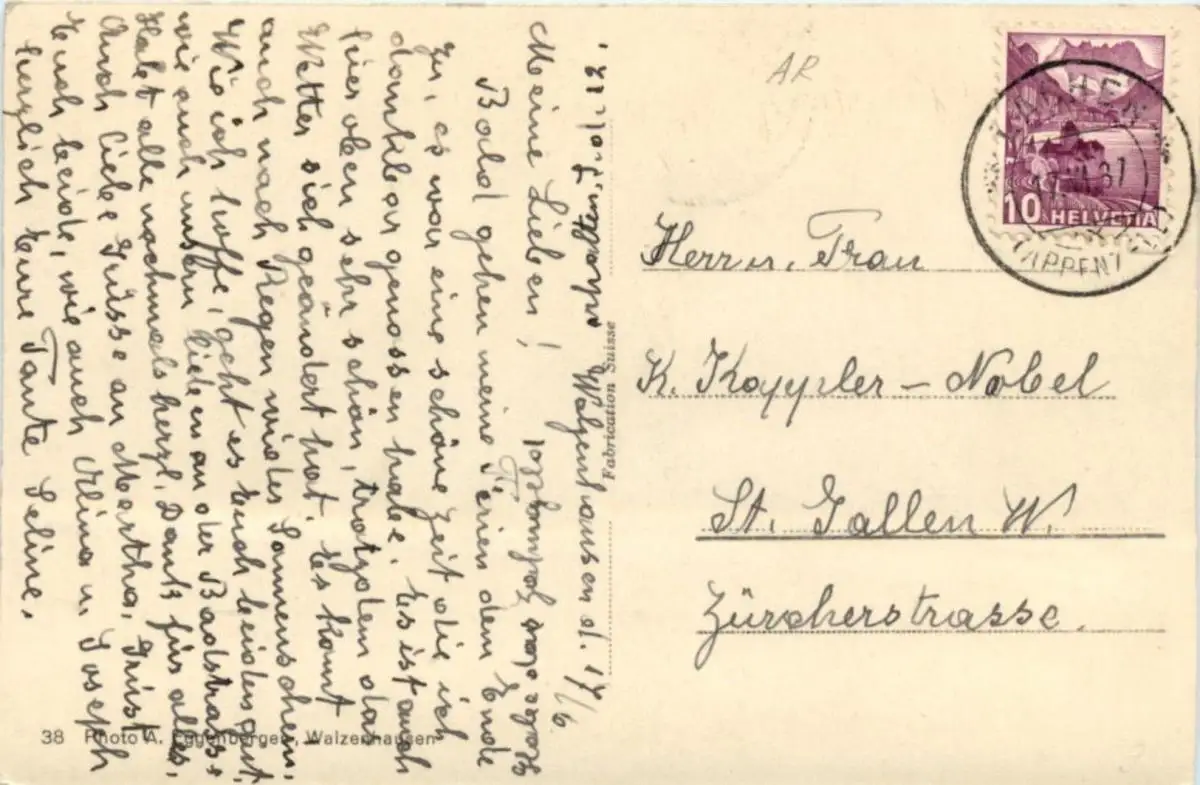 Walzenhausen d. 17/6.
Meine Lieben!
Bald gehen meine Ferien dem Ende
zu, es war eine schöne Zeit die ich
dankbar genossen habe. Es ist auch
hier oben sehr schön, trotzdem das
Wetter sich geändert hat. Es komt
auch nach Regen wieder Sonnenschein.
Wie ich hoffe, geht es Euch beiden gut,
wie auch unsern Lieben an der Badstrasse
Habt alle nochmals herzl. Dank für alles.
Auch liebe Grüsse an Martha. Grüsst
Euch beide, wie auch Alina u. Joseph
herzlich Eure Tante Seline.
38 Photo A. Eggenberger, Walzenhausen
Fabrication Suisse
AR
10 HELVETIA
APPENZELL
Herrn u. Frau
K. Koppler - Nobel
St. Gallen W.
Zürcherstrasse.